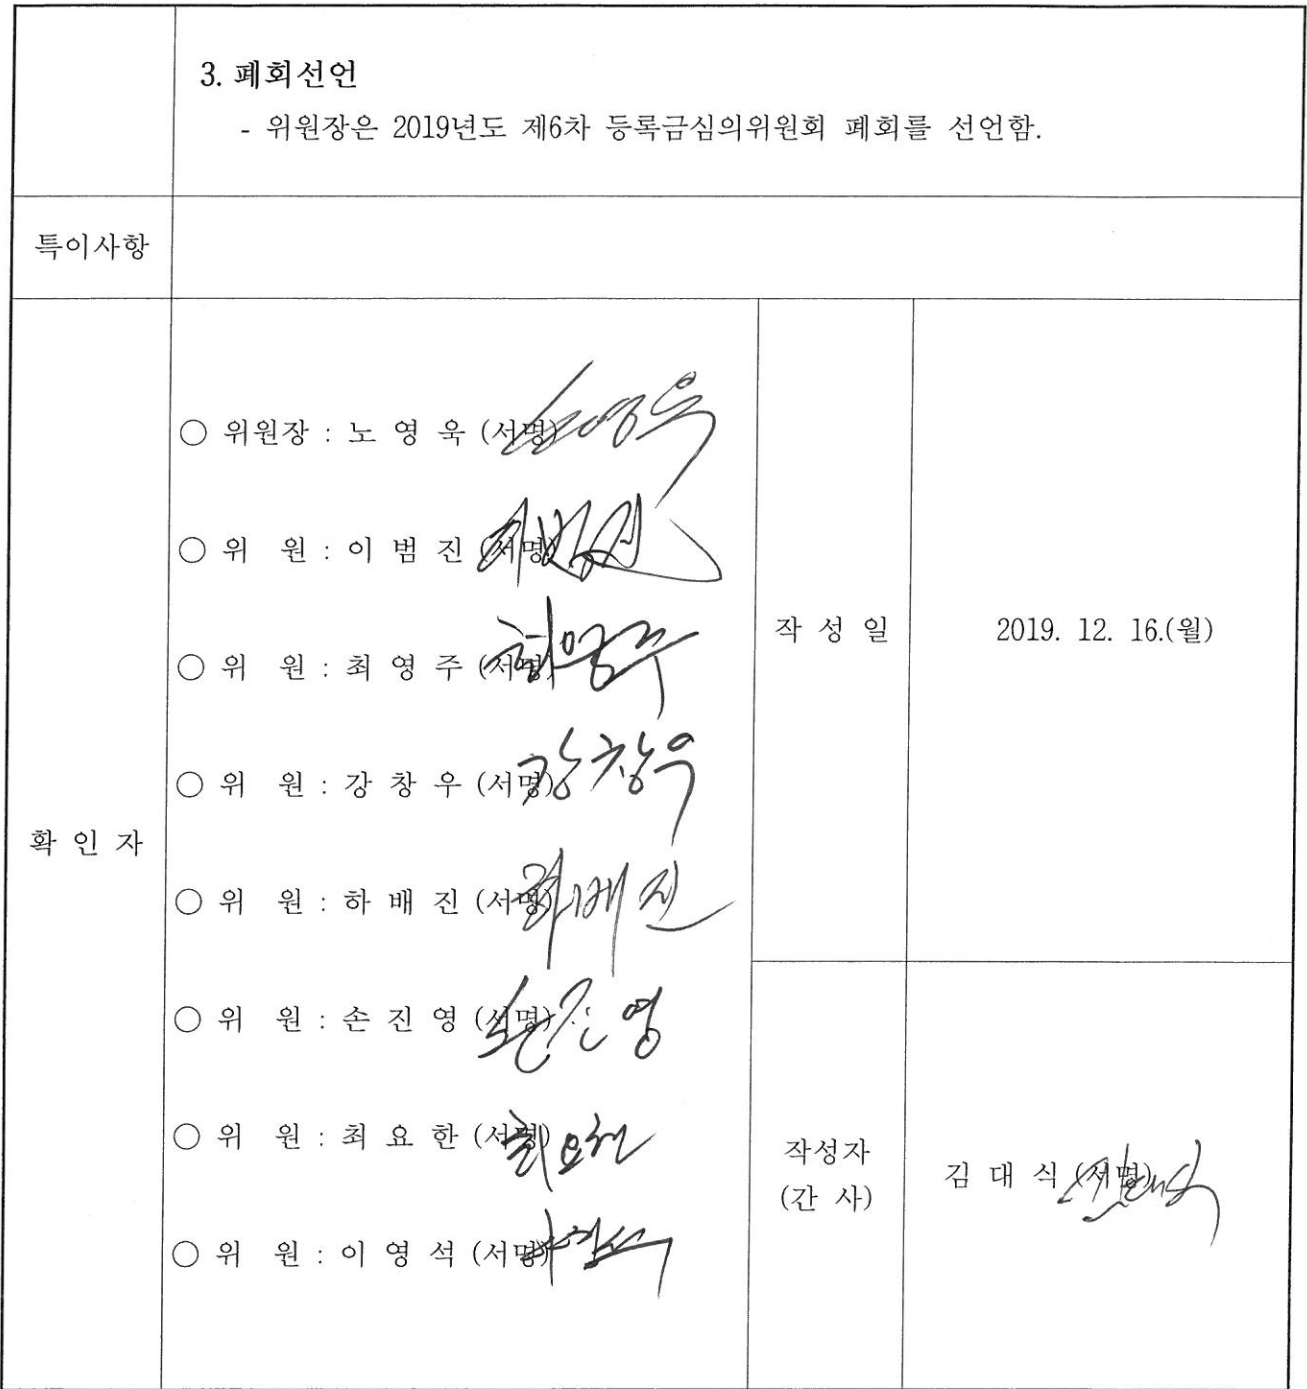 3. 폐회선언
- 위원장은 2019년도 제6차 등록금심의위원회 폐회를 선언함.
특이사항
확 인 자
○ 위원장 : 노 영 욱 (서명) 노영욱
○ 위 원 : 이 범 진 (서명) 이범진
○ 위 원 : 최 영 주 (서명) 최영주
○ 위 원 : 강 창 우 (서명) 강창우
○ 위 원 : 하 배 진 (서명) 하배진
○ 위 원 : 손 진 영 (서명) 손진영
○ 위 원 : 최 요 한 (서명) 최요한
○ 위 원 : 이 영 석 (서명)
작 성 일
2019. 12. 16.(월)
작성자
(간 사)
김 대 식 (서명)